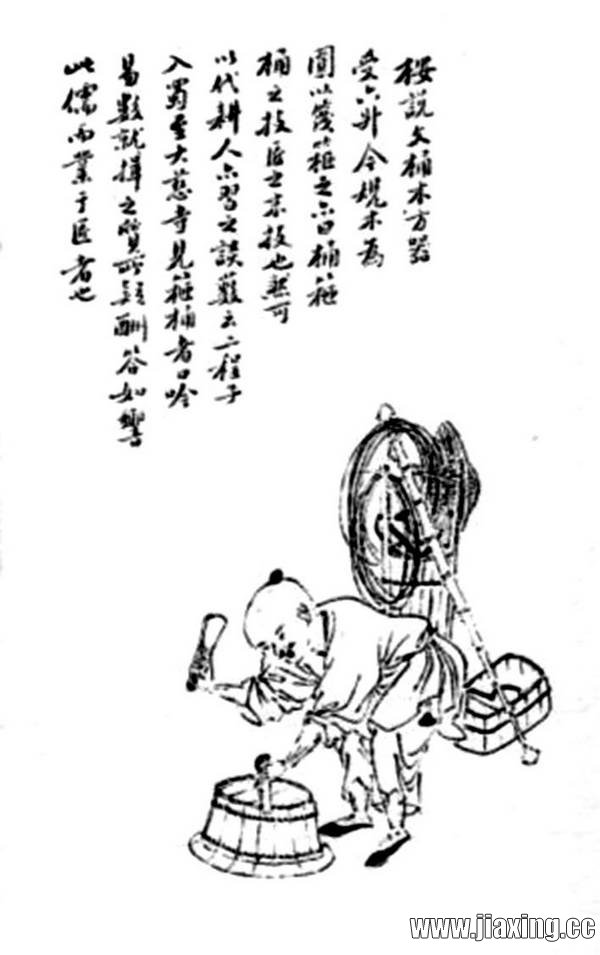 按說文桶木方器
受六升今規木為
圓以篾箍之亦曰桶箍
桶之技匠之末技也然可
以代耕人亦習之談藪云二程子
入蜀至大慈寺見箍桶者口吟
易數就揖之質所疑酬答如響
此儒而業于匠者也
www.jiaxing.cc